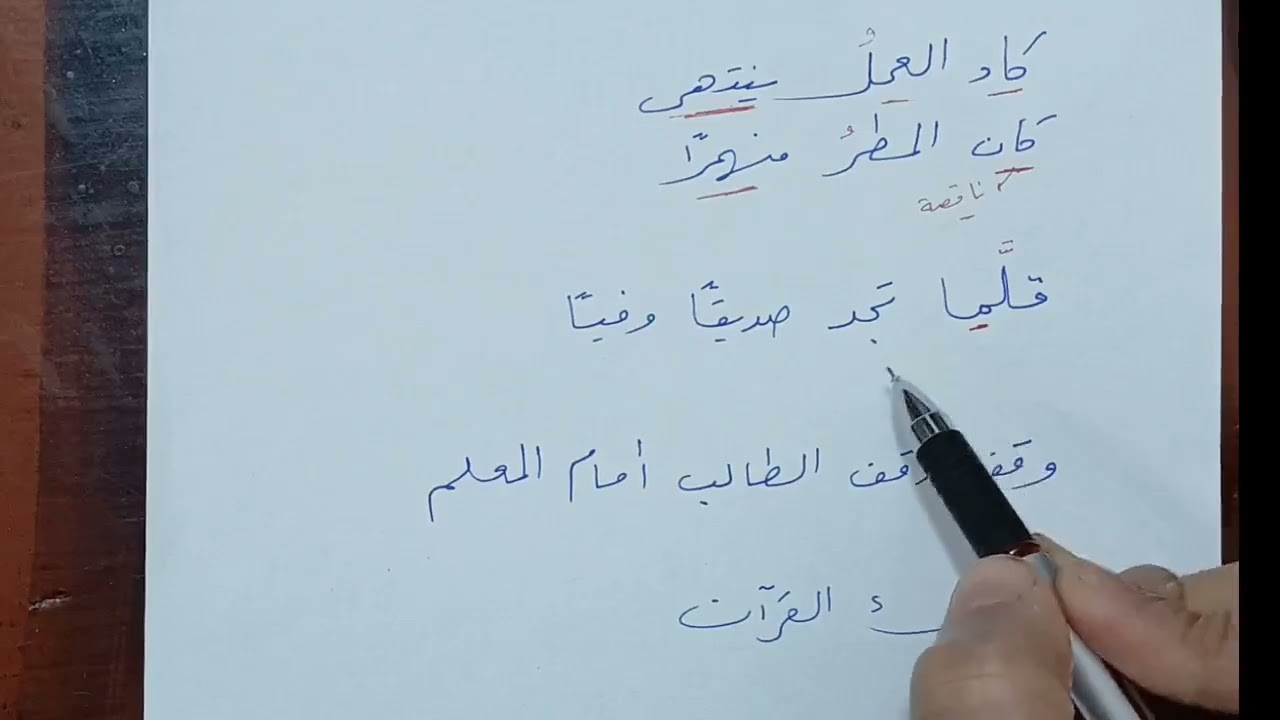 كاد العملُ ينتهى
كان المطرُ منهمرًا
ناقصة
قلَّما تَجد صديقًا وفيًا
وقف وقف الطالب أمام المعلم
القرآن